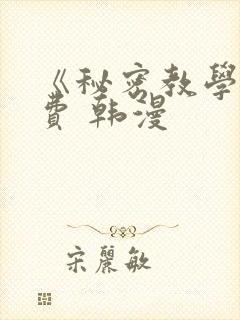 《秘密教學
費 韩漫
宋麗敏